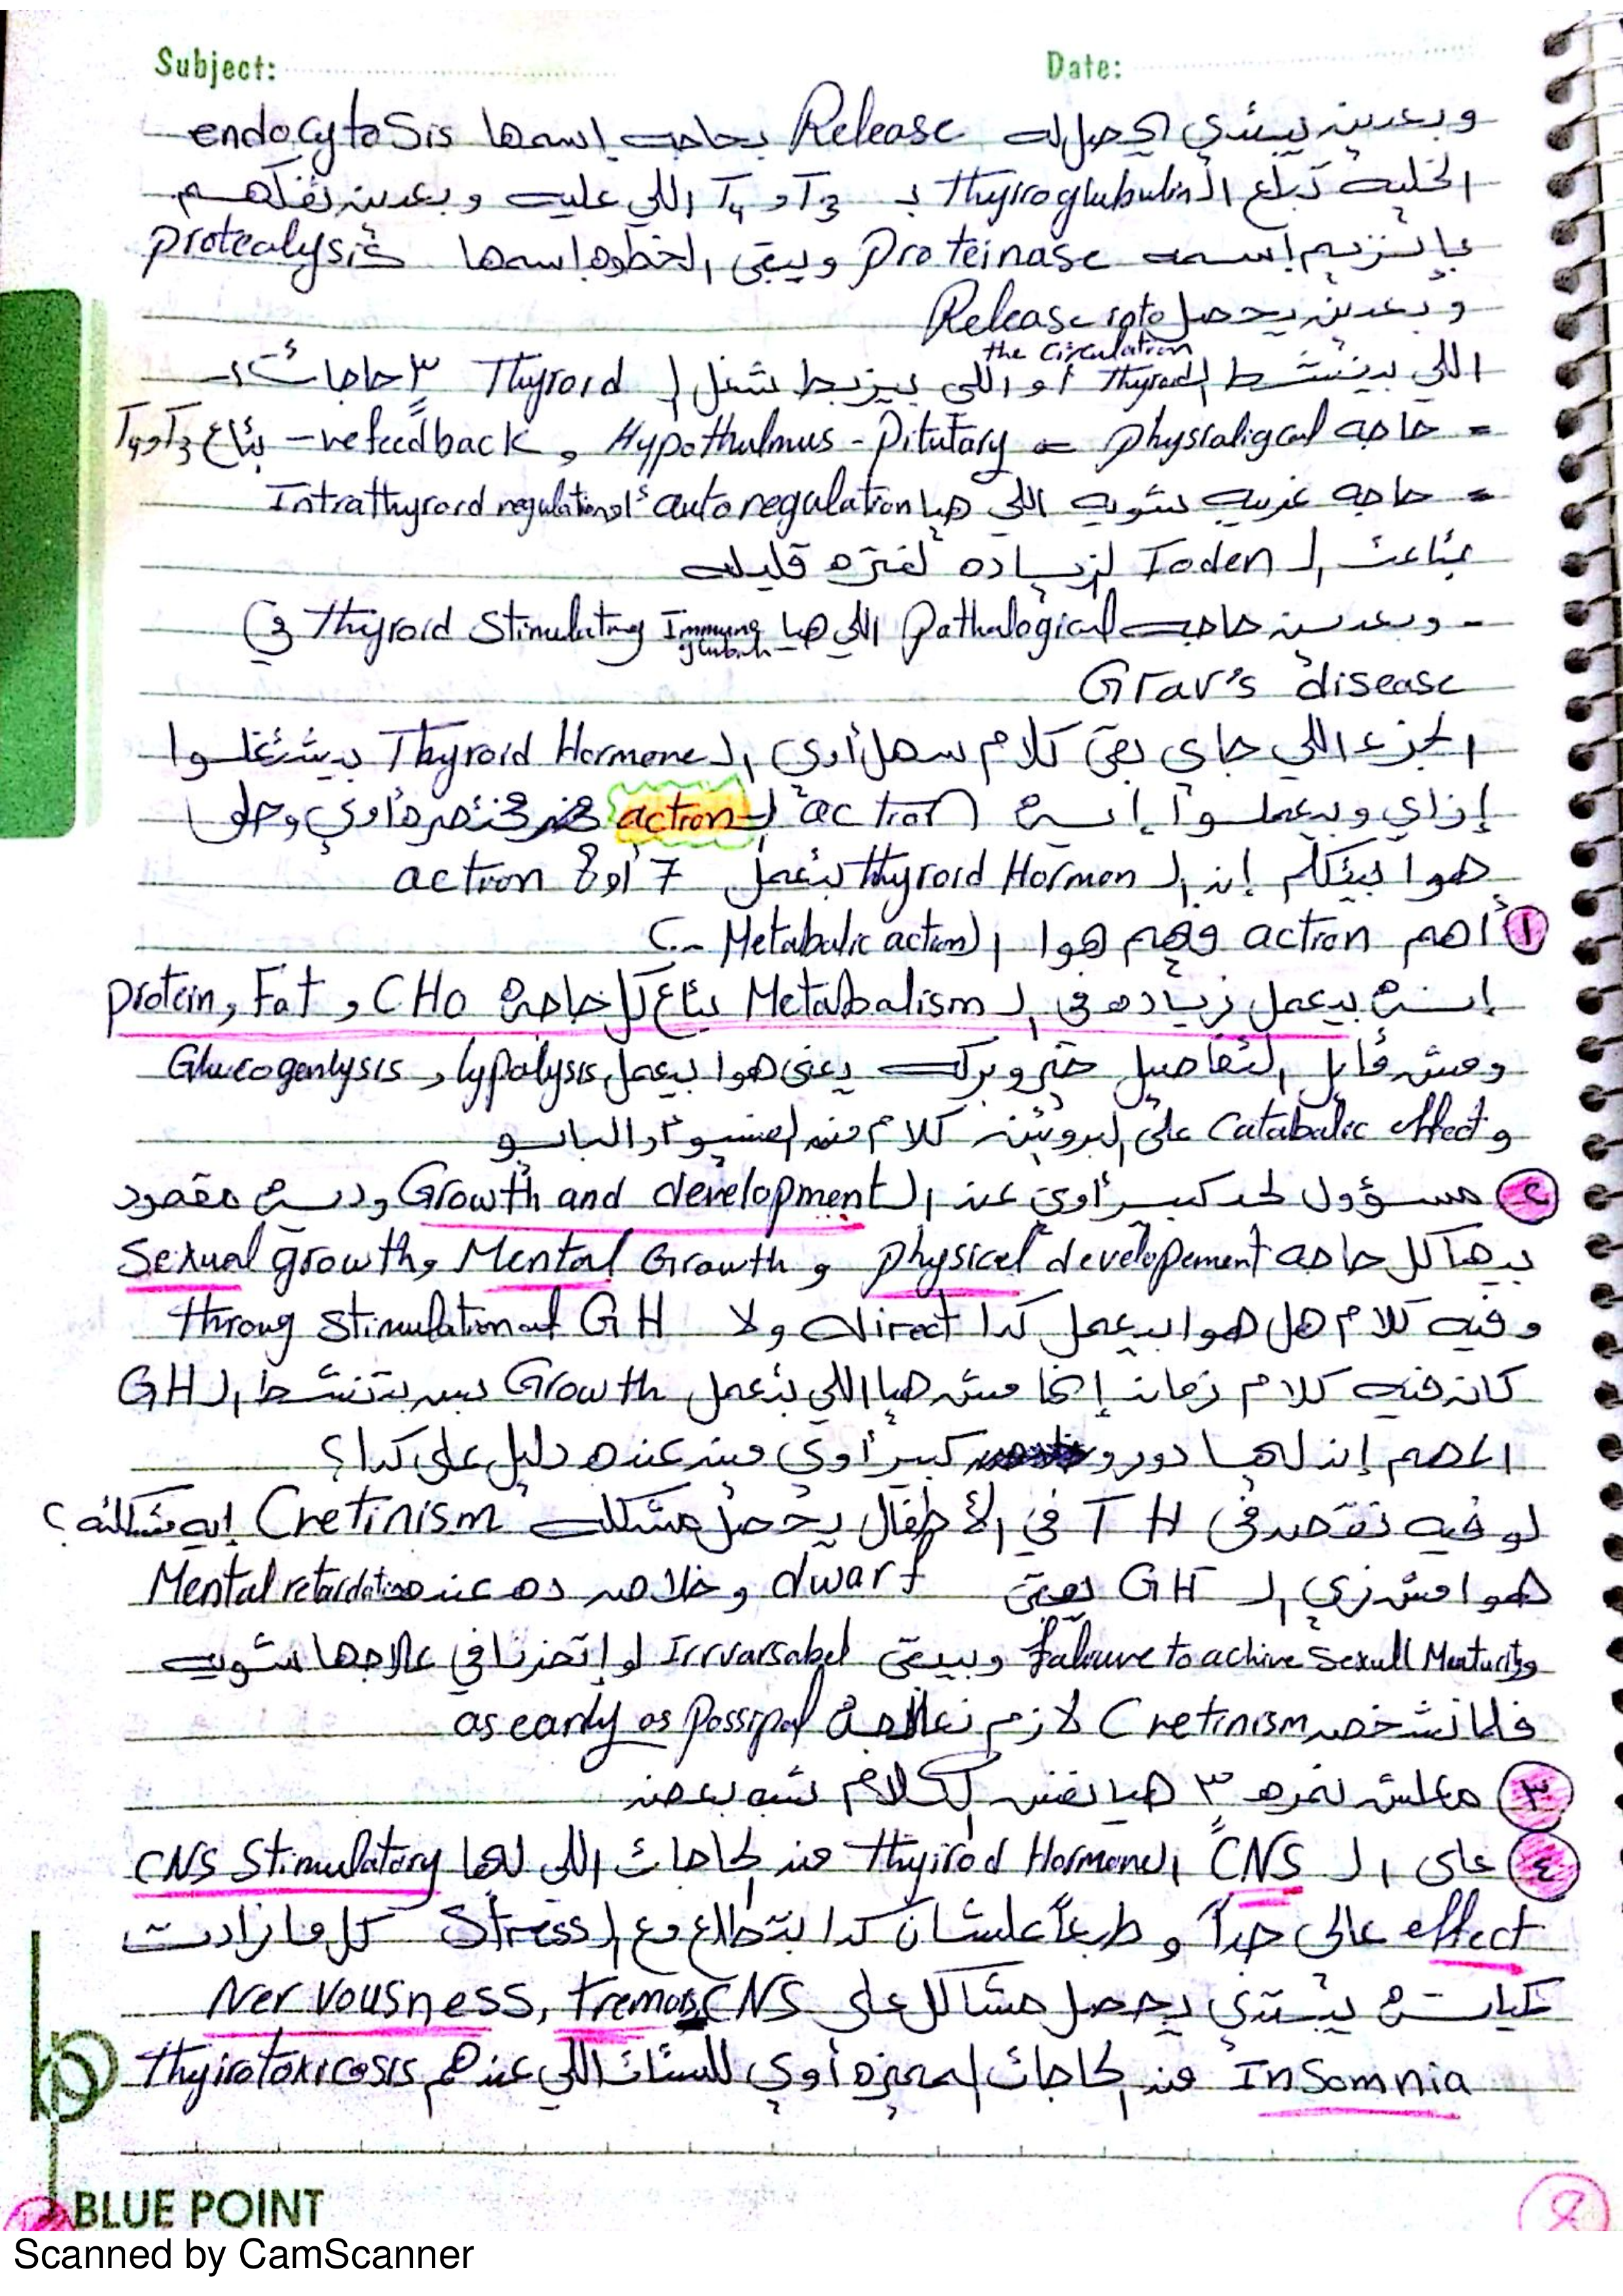 Subject: Date:
وبعدين يبتدي يحصل له Release بحاجه إسمها endocytosis
الخليه تبلع ال Thyroglubulin ب T3 و T4 اللي عليه وبعدين تفكهم
بإنزيم إسمه Proteinase ويبقى الخطوه إسمها protealysis
وبعدين يحصل Release into
the Circulation
اللي بينشط ال Thyroid أو اللي بيزبط شغل ال Thyroid ٣ حاجات :-
= حاجه physialigcal = Hypothulmus - Pitutary و -ve feedback بتاع T3 و T4
= حاجه غريبه شويه اللي هيا autoregulation أو Intrathyroid regulation
بتاعت ال Ioden لزياده لفتره قليله
- وبعدين حاجه Pathalogical اللي هيا Thyroid Stimulating Immung
glubulin في
Grav's disease
الجزء اللي جاي بقى كلام سهل أوي ال Thyroid Hormone بيشتغلوا
إزاي وبيعملوا إيه action ال action مختصره أوي وحلو
هوا بيتكلم إن ال Thyroid Hormon بتعمل 7 أو 8 action
١ أهم action فيهم هوا ال Metabalic action :-
إنه بيعمل زياده في ال Metabalism بتاع كل حاجه CHO و Fat و protein
ومش قايل التفاصيل خير وبركه يعني هوا بيعمل lypolysis و Glucogenlysis
و Catabalic effect على البروتين كلام من الفسيو والبايو
٢ مسؤول لحد كبير أوي عن ال Growth and development وده مقصود
بيها كل حاجه physicel developement و Mental Growth و Sexual growth
وفيه كلام هل هوا بيعمل كدا direct ولا throug stimulation of GH
كان فيه كلام زمان إنها مش هيا اللي بتعمل Growth بس بتنشط ال GH
المهم إن لها دور كبير أوي مين عنده دليل على كدا؟
لو فيه نقص في T H في الأطفال يحصل مشكله Cretinism إيه مشكلته؟
هوا مش زي ال GH يبقى dwarf وخلاص ده عنده Mental retardation
و Faliuure to achive Sexull Maturity وبيبقى Irrvarsabel لو إتأخرنا في علاجها شويه
فلما نشخص Cretinism لازم نعالجه as early as possipal
٣ معلش نمره ٣ هيا نفس الكلام شبه بعض
٤ على ال CNS ال Thyirod Hormone من الحاجات اللي لها CNS Stimulatory
effect عالي جداً و طبعاً علشان كدا بتطلع مع ال Stress كل ما زادت
كمياته يبتدي يحصل مشاكل على CNS Nervousness, tremors,
InSomnia من الحاجات المميزه أوي للستات اللي عندهم Thyirotoxicosis
BLUE POINT
8
Scanned by CamScanner